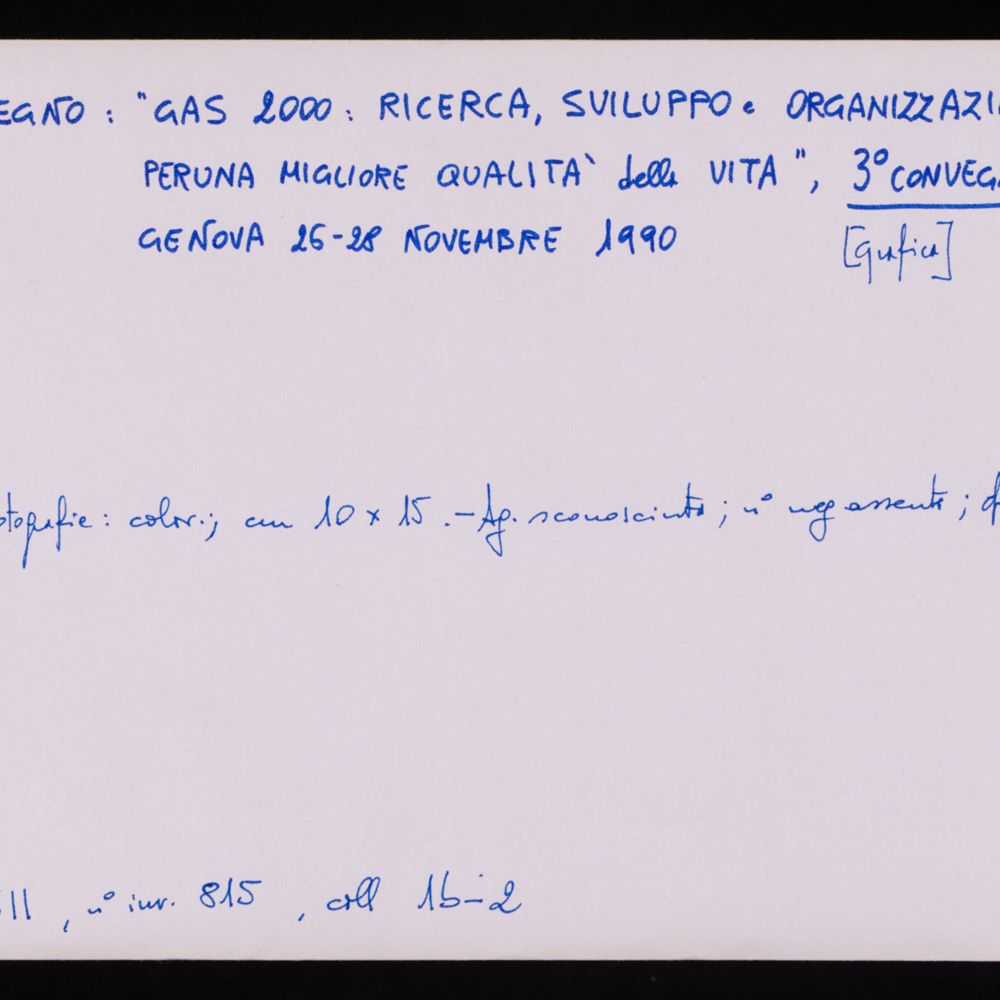 EGNO : "GAS 2000 : RICERCA, SVILUPPO e ORGANIZZAZI
PER UNA MIGLIORE QUALITA` della VITA", 3° CONVEG
GENOVA 26-28 NOVEMBRE 1990
[Grafica]
otografie : color.; cm 10 x 15 .- Ag. sconosciuta ; n° neg assente ;
11 , n° inv. 815 , coll 1b-2